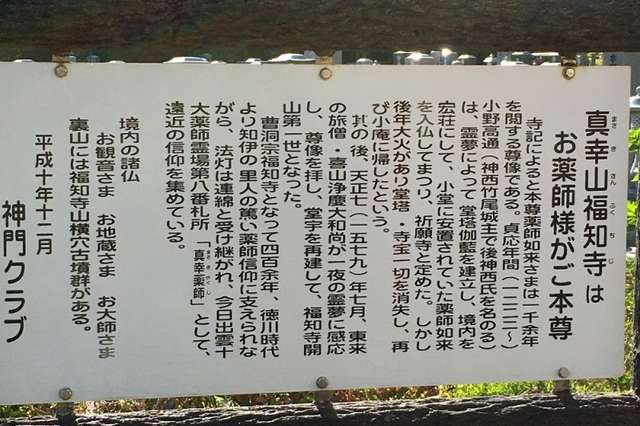 真幸山福知寺は
まさきさんふくちじ
お薬師様がご本尊
寺記によると本尊薬師如来さまは一千余年
を閲する尊像である。貞応年間(一二二二~
小野高通(神西竹尾城主で後神西氏を名のる)
は、霊夢によって堂塔伽藍を建立し、境内を
宏荘にして、小堂に安置されていた薬師如来
を入仏してまつり、祈願寺と定めた。しかし
後年大火があり堂塔・寺宝一切を消失し、再
び小庵に帰したという。
其の後、天正七(一五七九)年七月、東来
の旅僧・喜山浄慶大和尚が一夜の霊夢に感応
し、尊像を拝し、堂宇を再建して、福知寺開
山第一世となった。
曹洞宗福知寺となって四百余年、徳川時代
より知伊の里人の篤い薬師信仰に支えられな
がら、法灯は連綿と受け継がれ、今日出雲十
大薬師霊場第八番札所「真幸薬師」として、
まさきやくし
遠近の信仰を集めている。
境内の諸仏
お観音さま お地蔵さま お大師さま
裏山には福知寺山横穴古墳群がある。
平成十年十二月
神門クラブ